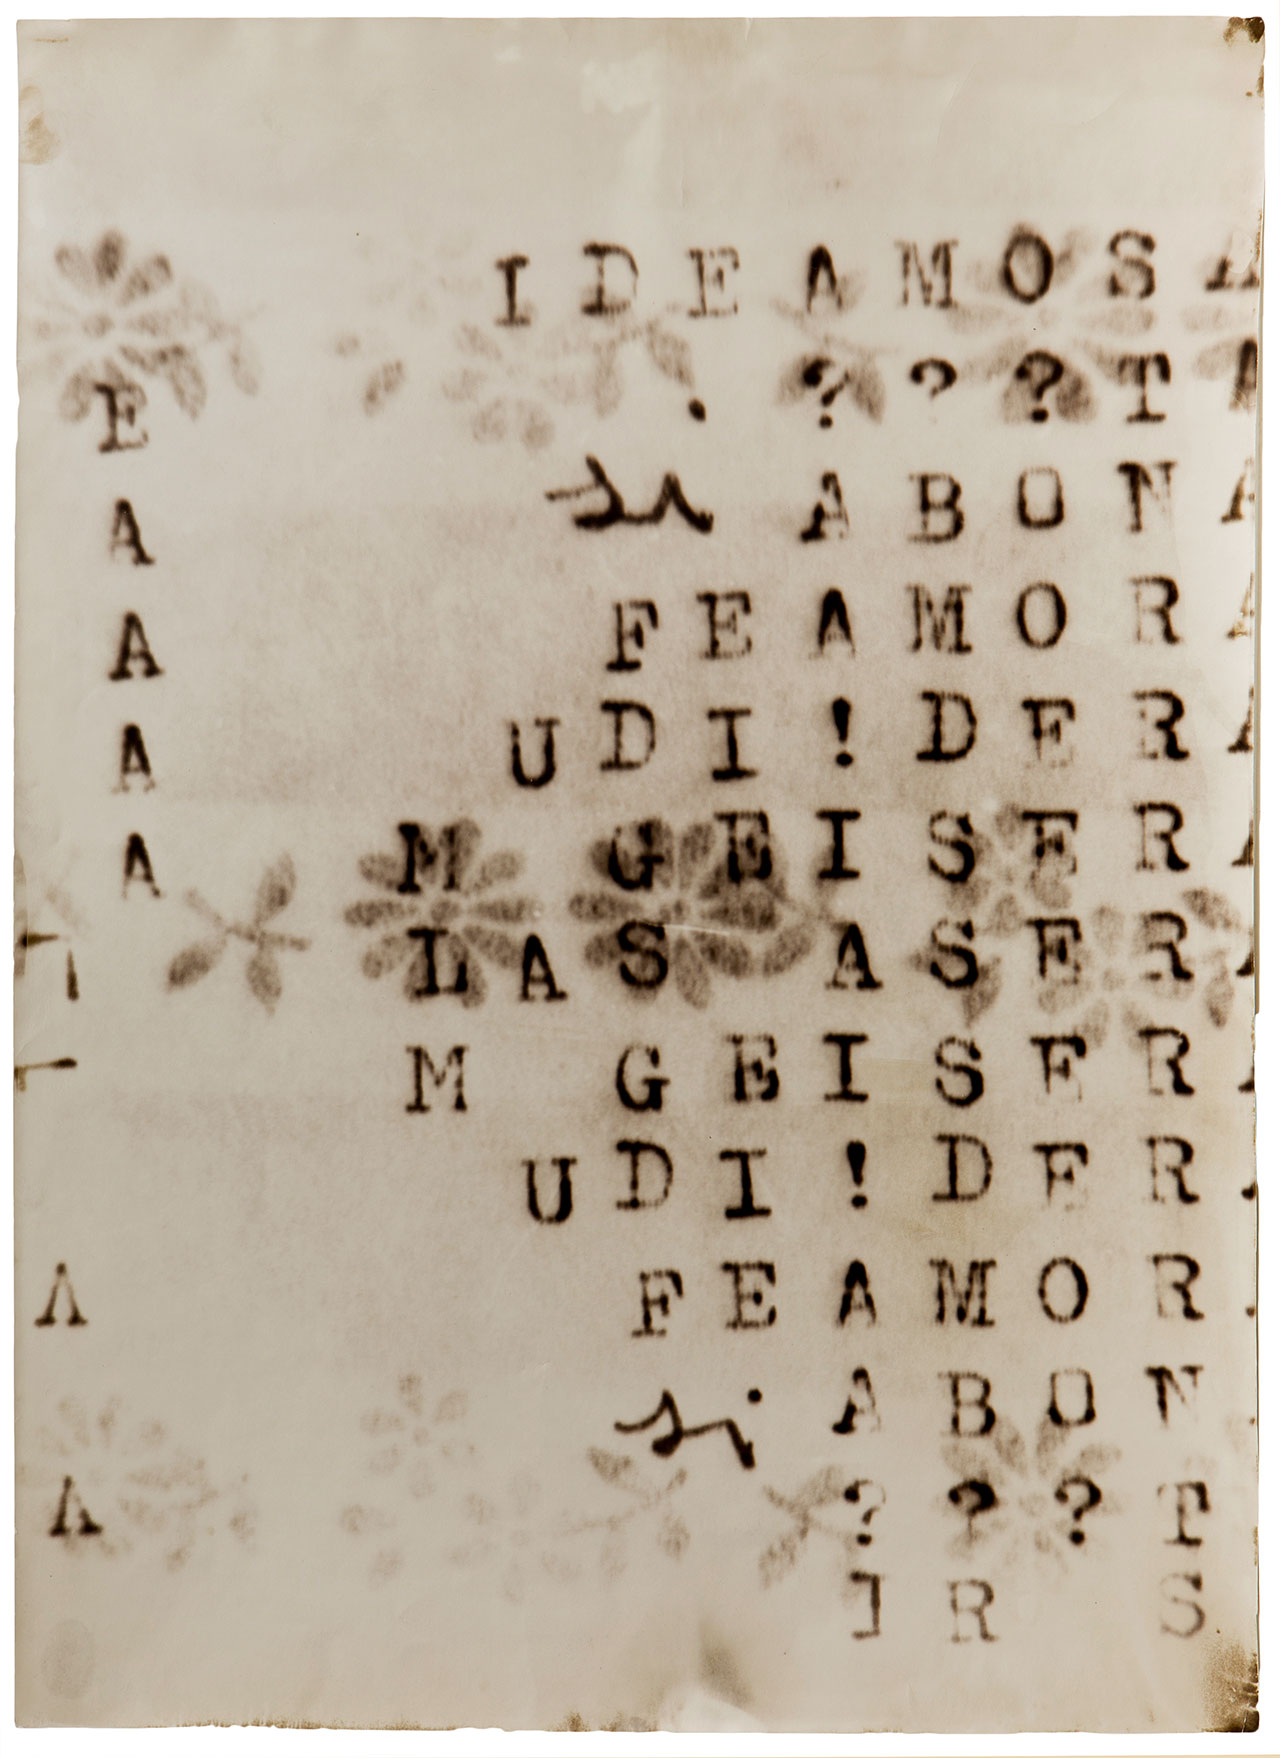 I D E A M O S A
E . ? ? ? T A
A si A B O N A
A F E A M O R A
A U D I ! D E R A
A M G E I S E R A
L A S A S E R A
M G E I S E R A
U D I ! D E R
A F E A M O R
si A B O N
A ? ? ? T
I R S